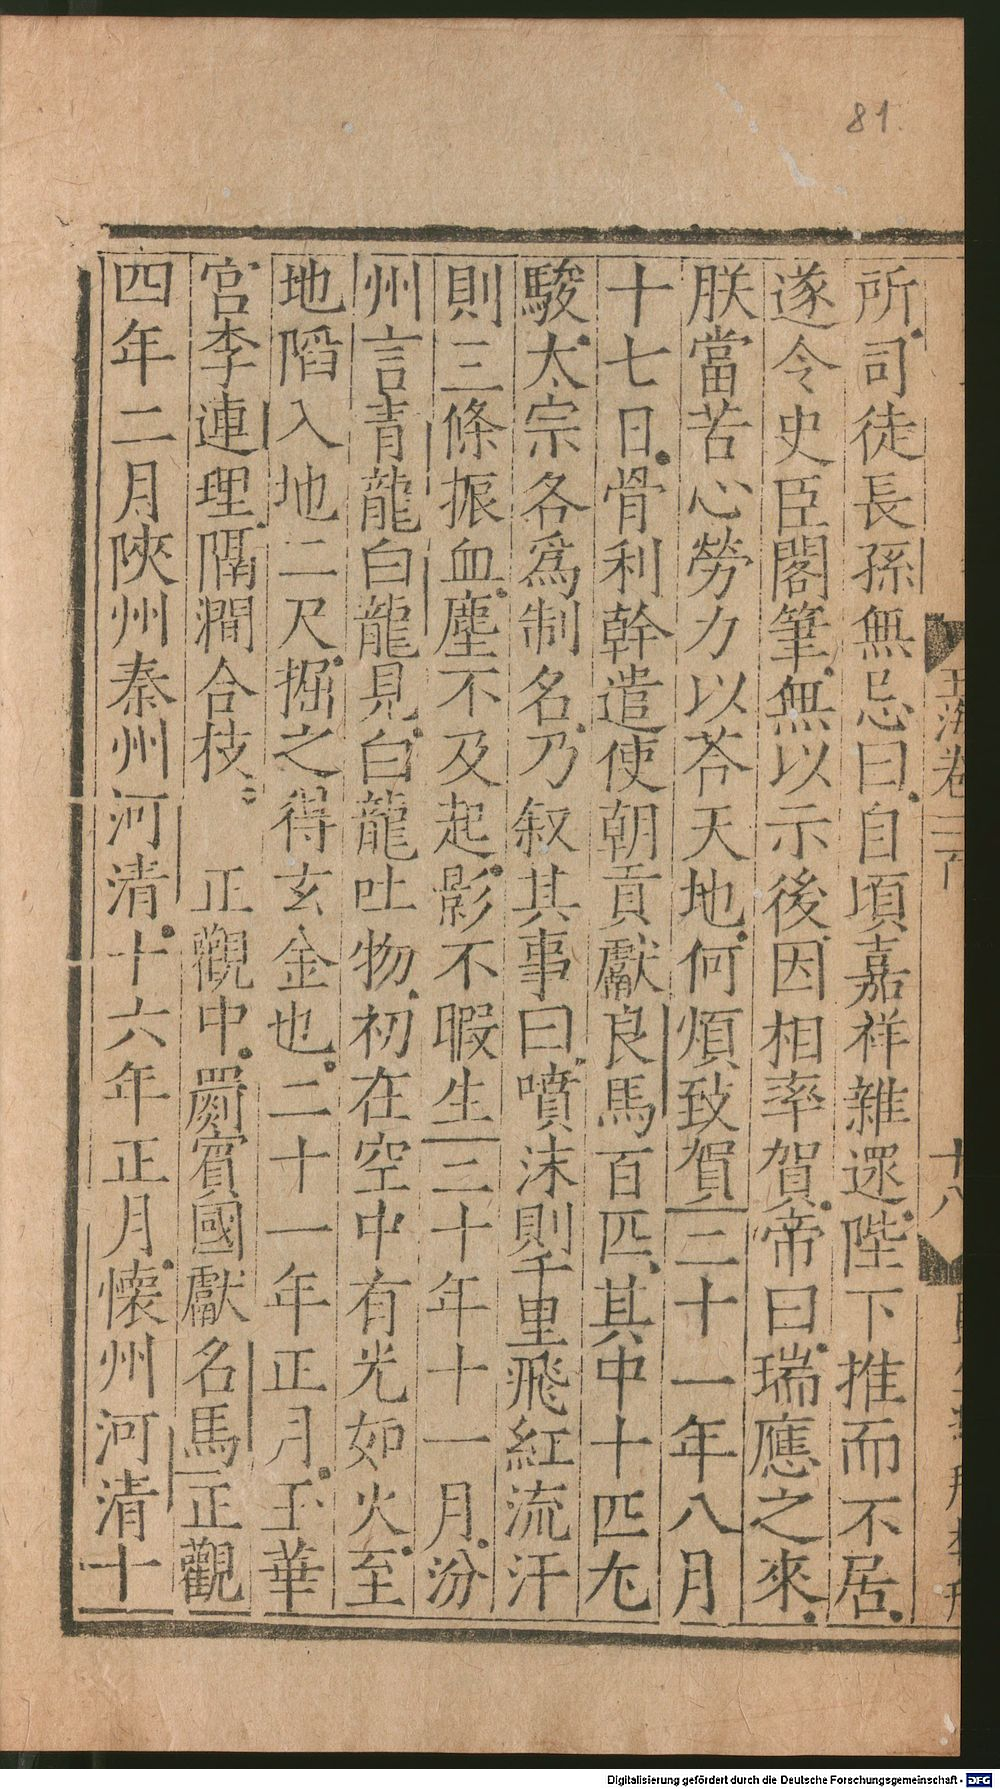 81.
所司徒長孫無忌曰自頃嘉祥雜遝陛下推而不居
遂令史臣閣筆無以示後因相率賀帝曰瑞應之來
朕當苦心勞力以荅天地何煩致賀二十一年八月
十七日骨利幹遣使朝貢獻良馬百匹其中十匹尤
駿太宗各爲制名乃叙其事曰噴沫則千里飛紅流汗
則三條振血塵不及起影不暇生二十年十一月汾
州言青龍白龍見白龍吐物初在空中有光如火至
地陷入地二尺掘之得玄金也二十一年正月玉華
宮李連理隔澗合枝 正觀中罽賓國獻名馬正觀
四年二月陝州秦州河清十六年正月懷州河清十
玉海卷 十八
Digitalisierung gefördert durch die Deutsche Forschungsgemeinschaft - DFG